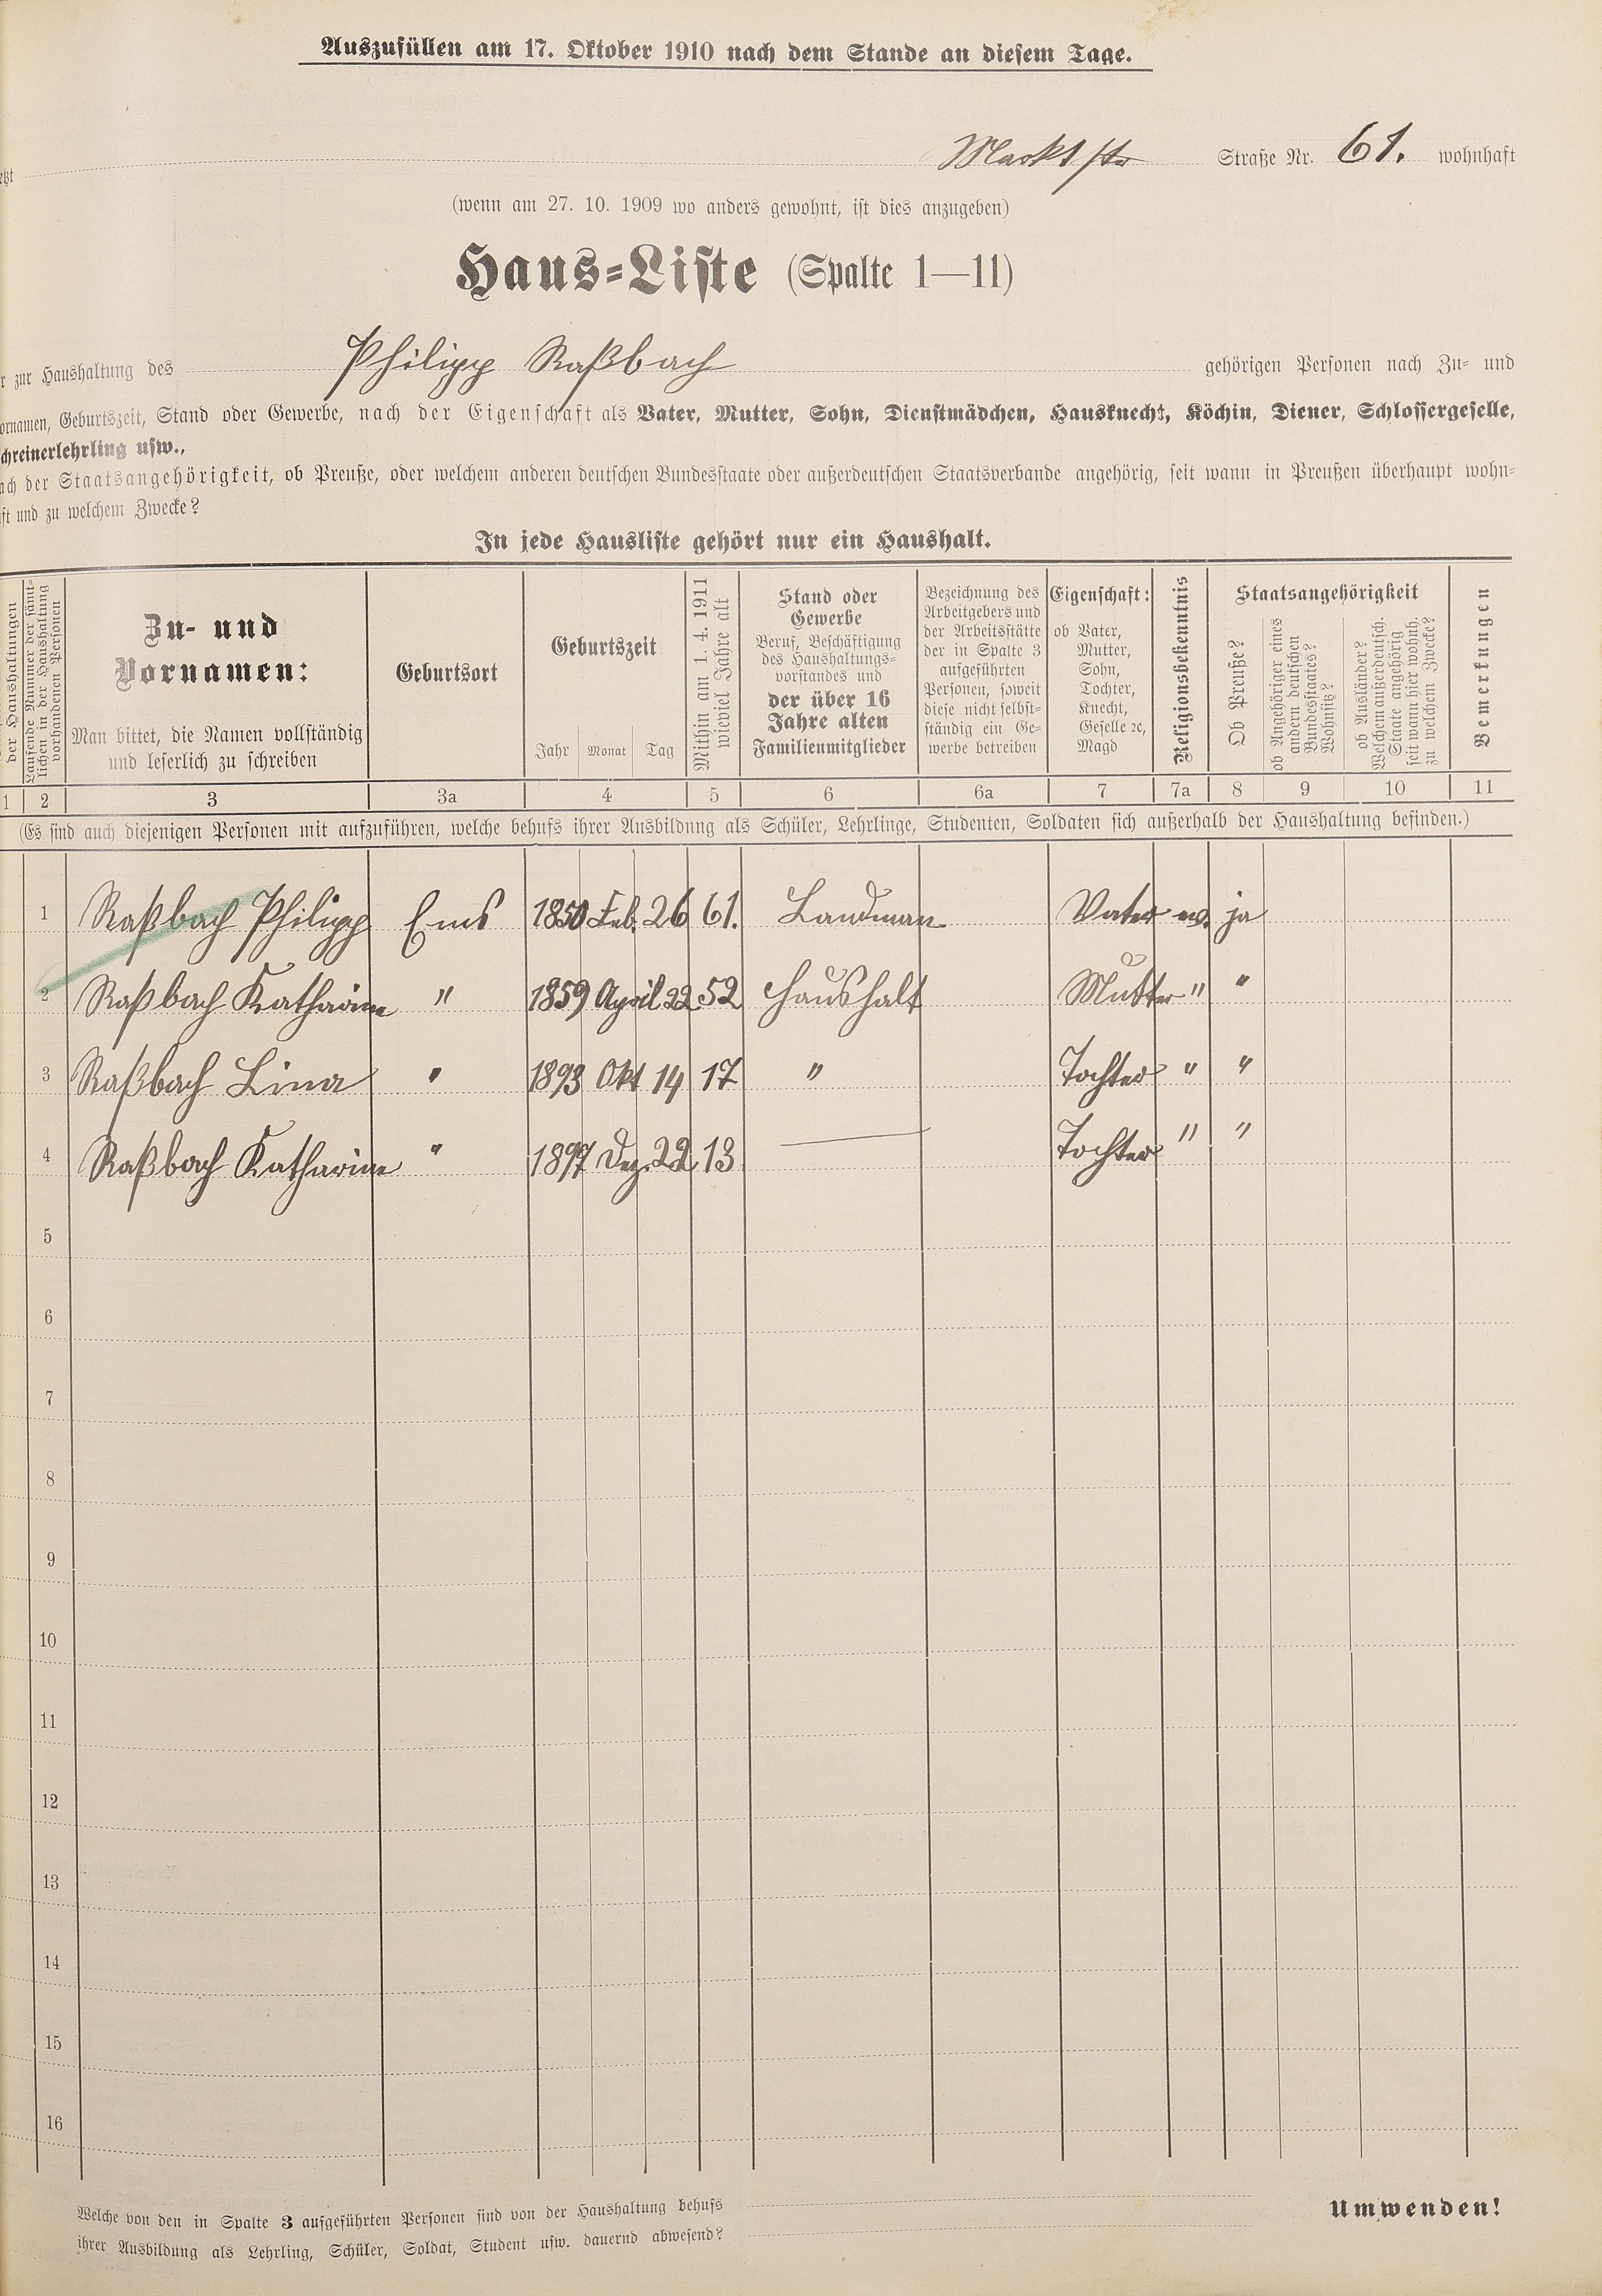 Auszufüllen am 17. Oktober 1910 nach dem Stande an diesem Tage.
Marktstr Straße Nr. 61. wohnhaft
(wenn am 27. 10. 1909 wo anders gewohnt, ist dies anzugeben)
Haus-Liste (Spalte 1—11)
r zur Haushaltung des Philipp Raßbach gehörigen Personen nach Zu- und
ornamen, Geburtszeit, Stand oder Gewerbe, nach der Eigenschaft als Vater, Mutter, Sohn, Dienstmädchen, Hausknecht, Köchin, Diener, Schlossergeselle,
chreinerlehrling usw.,
ach der Staatsangehörigkeit, ob Preuße, oder welchem anderen deutschen Bundesstaate oder außerdeutschen Staatsverbande angehörig, seit wann in Preußen überhaupt wohn-
ft und zu welchem Zwecke?
In jede Hausliste gehört nur ein Haushalt.
der Haushaltungen
Laufende Nummer der sämt-
lichen in der Haushaltung
vorhandenen Personen
Zu- und
Vornamen:
Man bittet, die Namen vollständig
und leserlich zu schreiben
Geburtsort
Geburtszeit
Jahr Monat Tag
Mithin am 1. 4. 1911
wieviel Jahre alt
Stand oder
Gewerbe
Beruf, Beschäftigung
des Haushaltungs-
vorstandes und
der über 16
Jahre alten
Familienmitglieder
Bezeichnung des
Arbeitgebers und
der Arbeitsstätte
der in Spalte 3
aufgeführten
Personen, soweit
diese nicht selbst-
ständig ein Ge-
werbe betreiben
Eigenschaft:
ob Vater,
Mutter,
Sohn,
Tochter,
Knecht,
Geselle ꝛc,
Magd
Religionsbekenntnis
Staatsangehörigkeit
Ob Preuße?
ob Angehöriger eines
andern deutschen
Bundesstaates?
Wohnsitz?
ob Ausländer?
Welchem außerdeutsch.
Staate angehörig
seit wann hier wohnh.
zu welchem Zwecke?
Bemerkungen
1 2 3 3a 4 5 6 6a 7 7a 8 9 10 11
(Es sind auch diejenigen Personen mit aufzuführen, welche behufs ihrer Ausbildung als Schüler, Lehrlinge, Studenten, Soldaten sich außerhalb der Haushaltung befinden.)
1 Raßbach Philipp Ems 1850 Feb. 26 61. Landman Vater ev. ja
2 Raßbach Katharine " 1859 April 22 52 Haushalt Mutter " "
3 Raßbach Lina " 1893 Okt 14 17 " Tochter " "
4 Raßbach Katharine " 1897 Dez. 22 13 — Tochter " "
5
6
7
8
9
10
11
12
13
14
15
16
Welche von den in Spalte 3 aufgeführten Personen sind von der Haushaltung behufs
ihrer Ausbildung als Lehrling, Schüler, Soldat, Student usw. dauernd abwesend?
Umwenden!